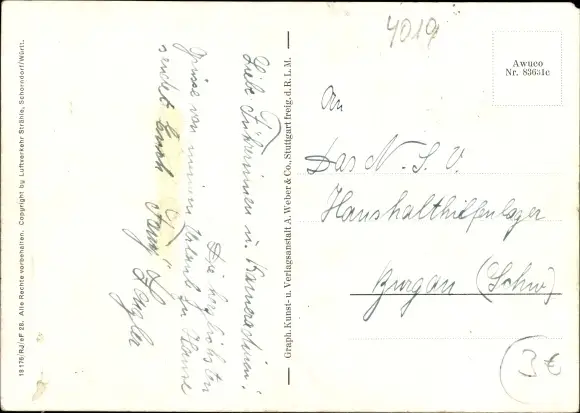 4019
Awuco
Nr. 83631c
An
Das N.S.V.
Haushalthilfenlager
Burgau (Schw)
3 €
Graph. Kunst- u. Verlagsanstalt A. Weber & Co., Stuttgart freig. d. R. L. M.
Liebe Führerinnen u. Kameradinnen!
Die herzlichsten
Grüsse von meinem Urlaub zu Hause
sendet Euch
18176/RJ/eF 28. Alle Rechte vorbehalten. Copyright by Luftverkehr Strähle, Schorndorf/Württ.